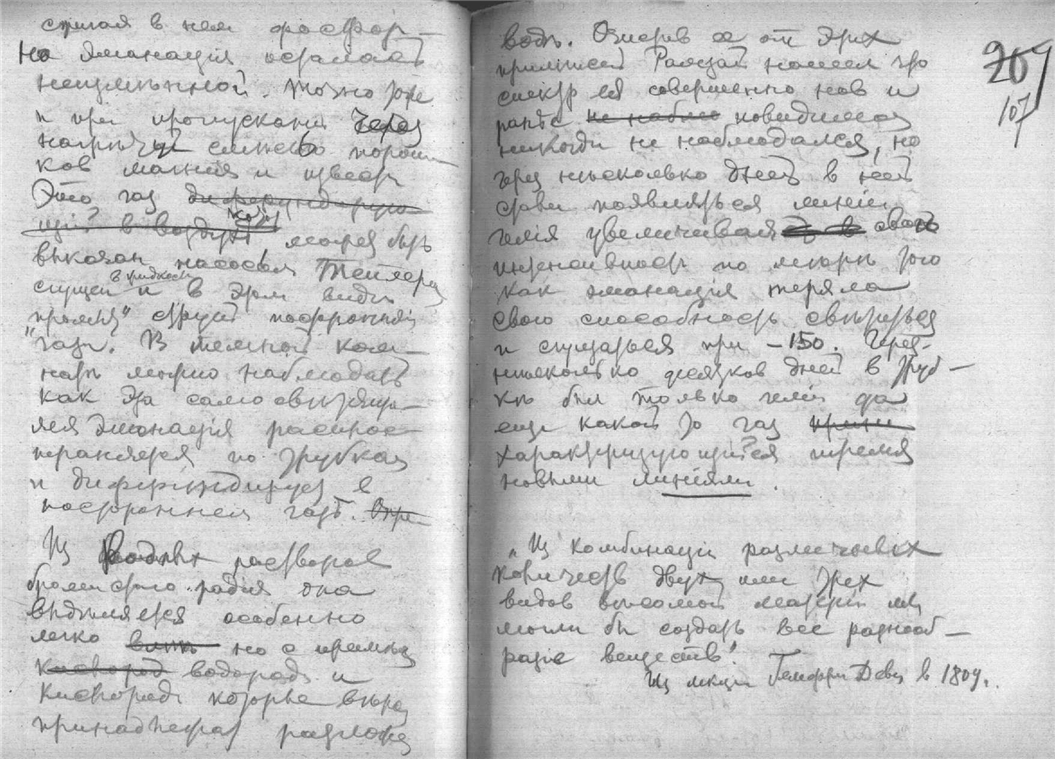 сжигая в нем фосфор —
но эманация осталась
неизменной. Тоже
и при пропускании через
нагрятый смесью порош
ков магния и извести
Это газ диффундирую
щий в воздухе, может быть
выкачан насосом Теплера
сгущен в жидкость и в этом виде
прямя" струей посторонний
"газ". В темной ком—
нате можно наблюдать
как эта самосветяща—
яся эманация распрос—
траняется по трубкам
и диффундирует в
постороннем газе.
Из водных растворов
бромистого радия она
выделяется особенно
легко но с примесью
кислород водорода и
кислорода которые
принадлежат разложе
воды. Очистив ее от этих
примесей Рамзай нашел что
спектр ея совершенно нов и
ранее не наблю повидимому
никогда не наблюдался, но
через несколько дней в ней
стали появляться линии
гелия увеличивая свою
интенсивность по мере того
как эманация теряла
свою способность светиться
и сгущаться при -150. Через
несколько десятков дней в труб—
ке был только гелий да
еще какой то газ
характеризующийся тремя
новыми линиями.
207
107
„Из комбинаций различных
количеств двух или трех
видов весомой материи мы
могли бы создать все разнооб—
разие веществ".
Из лекции Гемфри Деви в 1809.